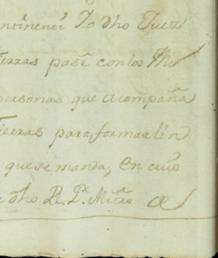 Yo dho Juez
tierras pasé con los
personas que acompaña
tierras para formar lin
que se manda, en cuio
dho R. P. Mtro